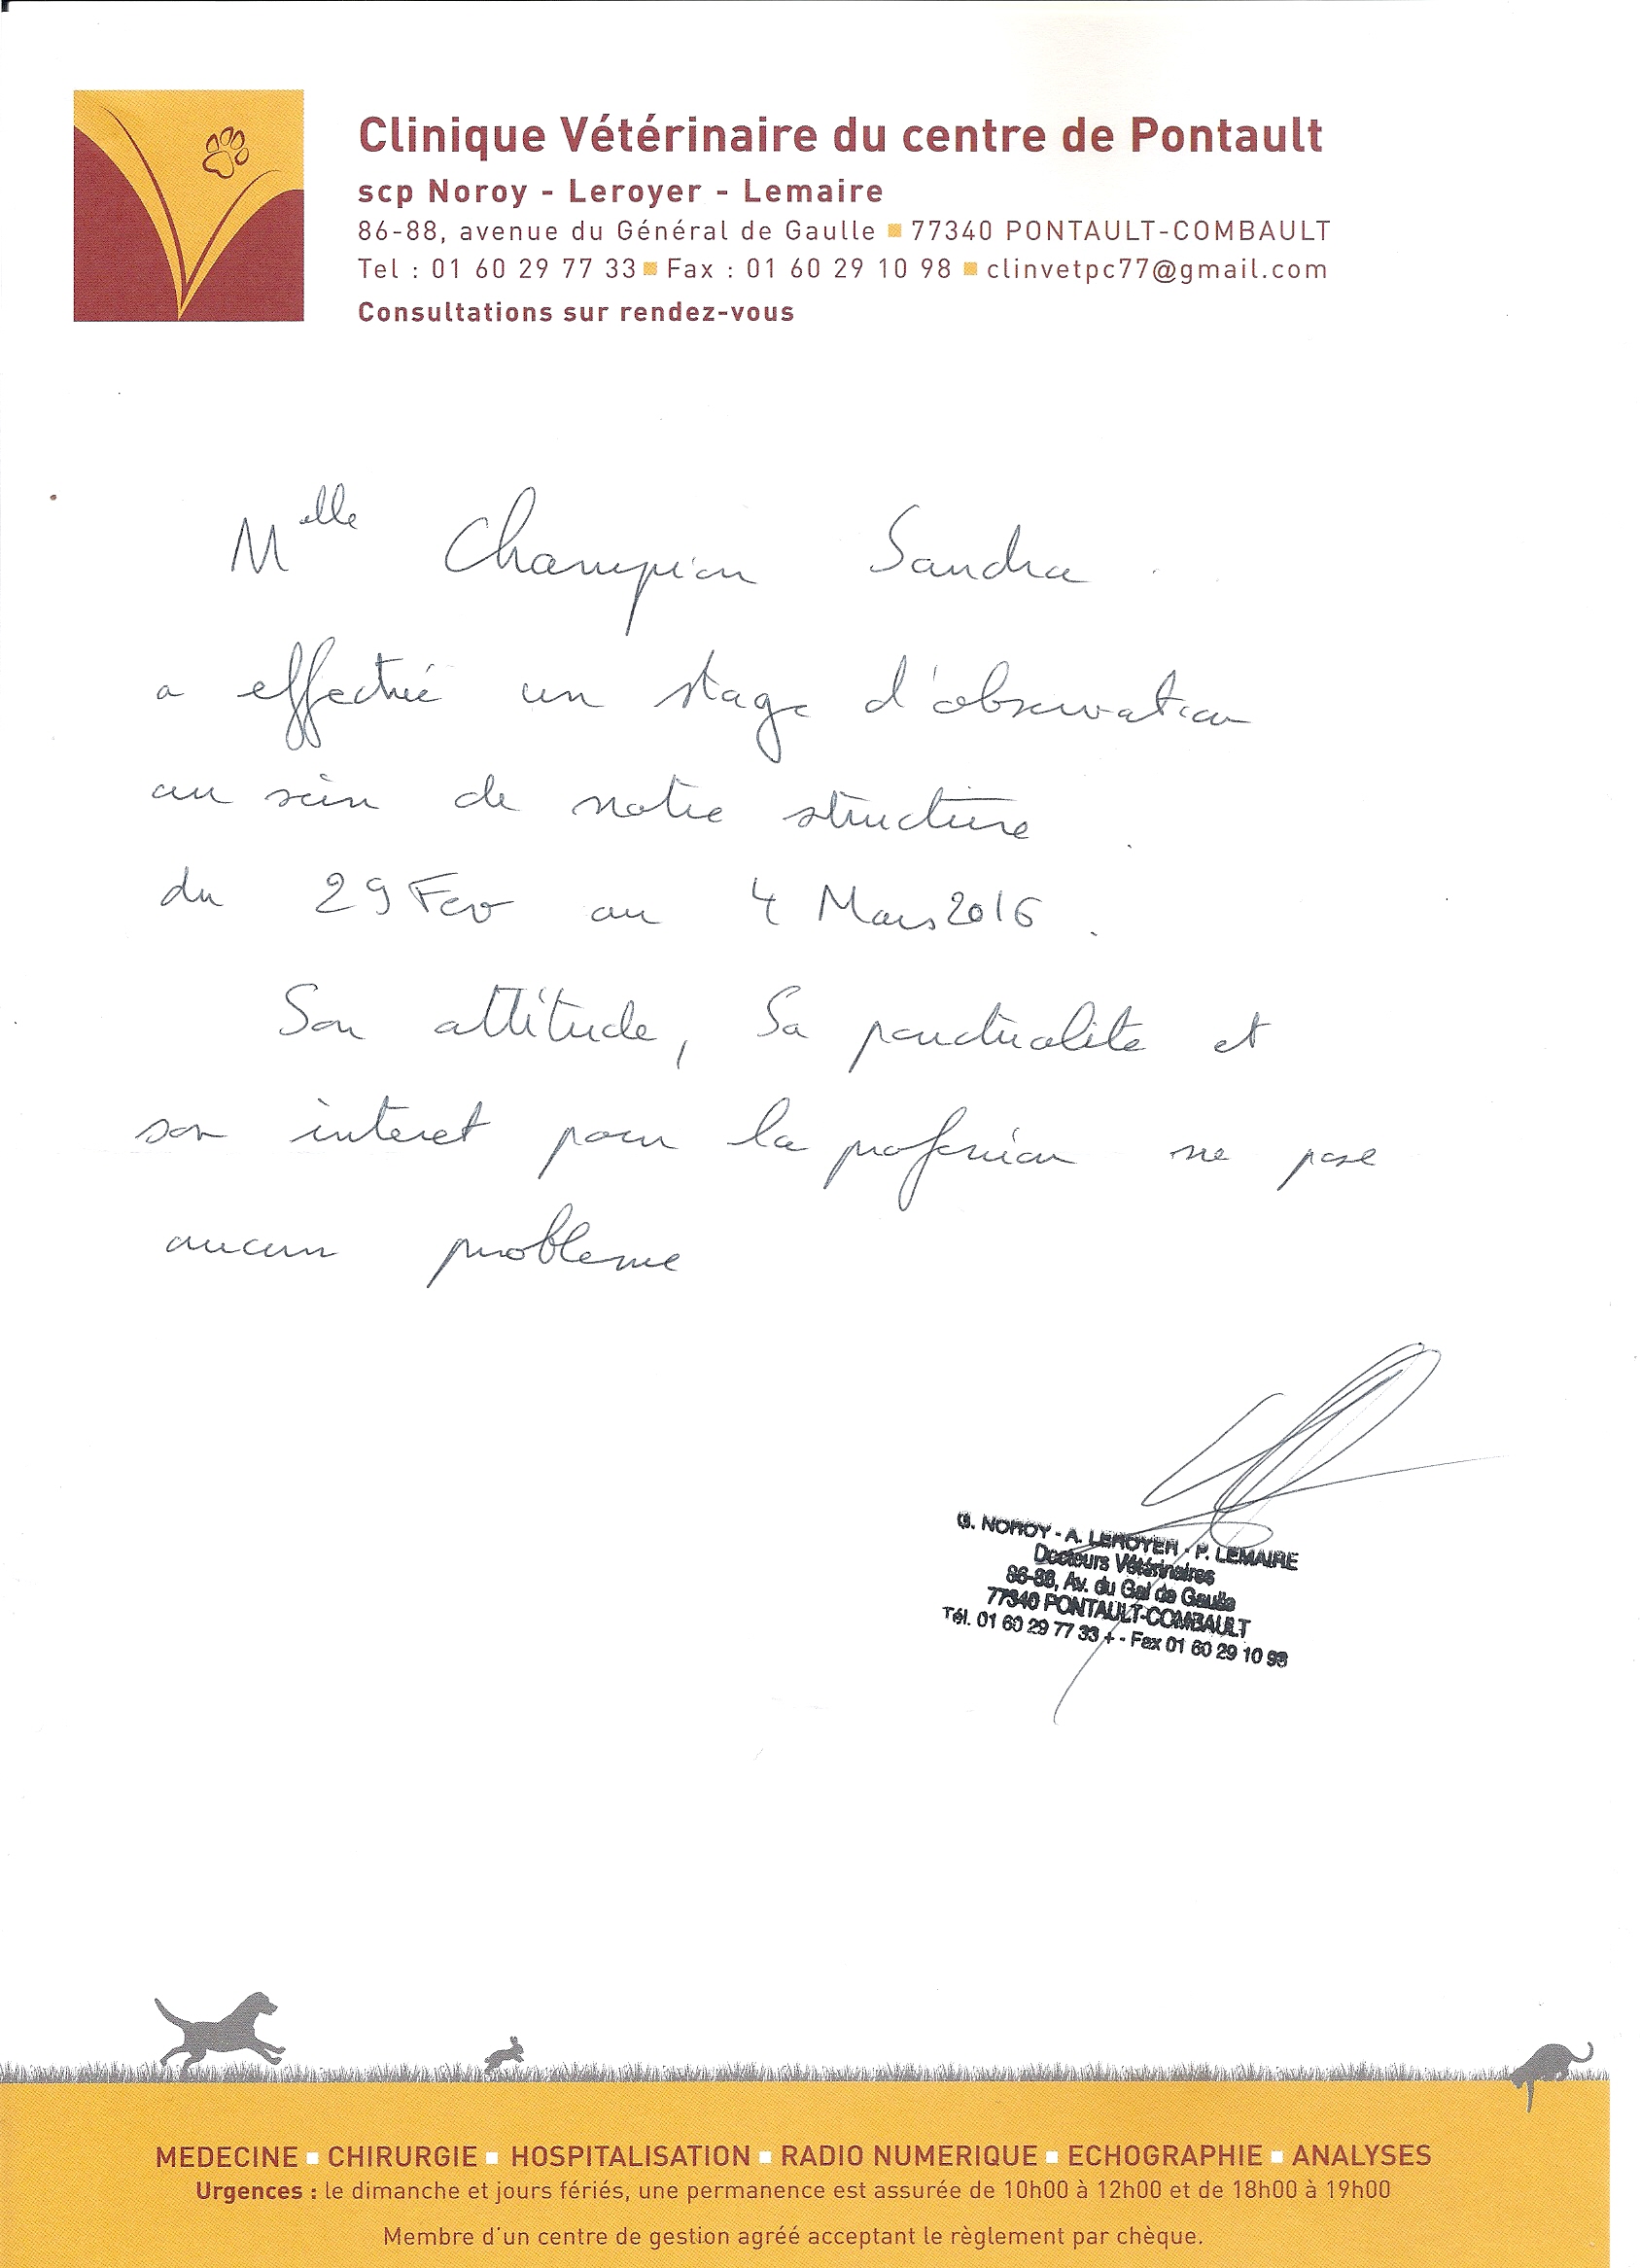 Clinique Vétérinaire du centre de Pontault
scp Noroy - Leroyer - Lemaire
86-88, avenue du Général de Gaulle ▪ 77340 PONTAULT-COMBAULT
Tel : 01 60 29 77 33 ▪ Fax : 01 60 29 10 98 ▪ clinvetpc77@gmail.com
Consultations sur rendez-vous
Melle Champion Sandra
a effectué un stage d'observation
au sein de notre structure
du 29 Fev au 4 Mars 2016.
Son attitude, Sa ponctualite et
son interet pour la profession ne pose
aucun probleme
G. NOROY - A. LEROYER - P. LEMAIRE
Docteurs Vétérinaires
86-88, Av. du Gal de Gaulle
77340 PONTAULT-COMBAULT
Tél. 01 60 29 77 33 + - Fax 01 60 29 10 98
MEDECINE ▪ CHIRURGIE ▪ HOSPITALISATION ▪ RADIO NUMERIQUE ▪ ECHOGRAPHIE ▪ ANALYSES
Urgences : le dimanche et jours fériés, une permanence est assurée de 10h00 à 12h00 et de 18h00 à 19h00
Membre d'un centre de gestion agréé acceptant le règlement par chèque.